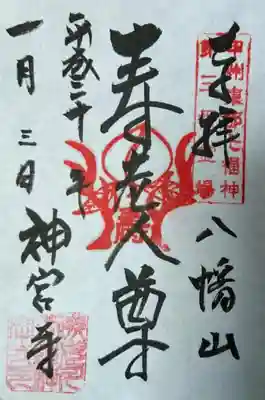 奉拝 八幡山
甲州東郡七福神
寿老人尊
平成二十年
一月三日 神宮寺